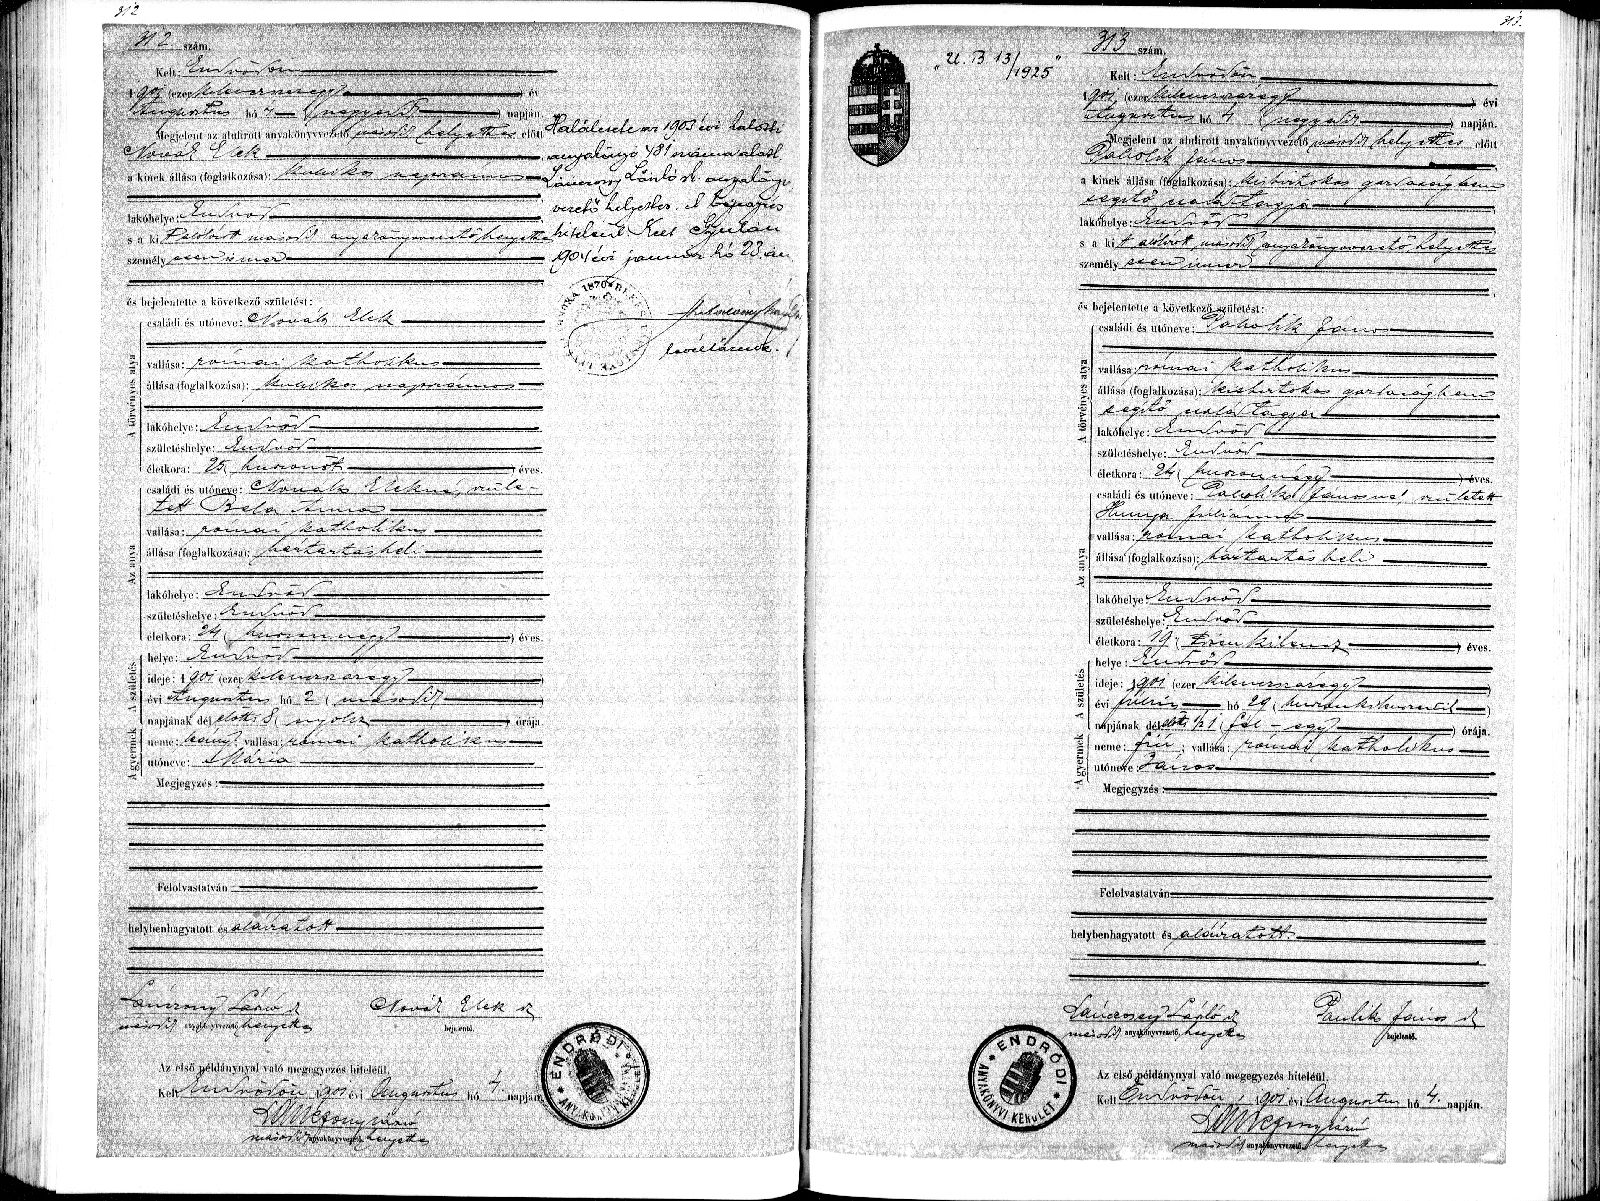 312
312 szám.
Kelt: Endrődön
1901 (ezerkilencszázegy) évi
Augusztus hó 4 (negyedik) napján.
Megjelent az alulirott anyakönyvvezető második helyettes előtt
Novák Elek
a kinek állása (foglalkozása): kubikos napszámos
lakóhelye: Endrőd
s a kit alólirott második anyakönyvvezető helyettes
személyesen ismer
és bejelentette a következő születést:
A törvényes atya
családi és utóneve: Novák Elek
vallása: római katholikus
állása (foglalkozása): kubikos napszámos
lakóhelye: Endrőd
születéshelye: Endrőd
életkora: 25 (huszonöt) éves.
Az anya
családi és utóneve: Novák Elekné, szüle-
tett Bela Anna
vallása: római katholikus
állása (foglalkozása): háztartásbeli
lakóhelye: Endrőd
születéshelye: Endrőd
életkora: 24 (huszonnégy) éves.
A születés
helye: Endrőd
ideje: 1901 (ezerkilencszázegy)
évi Augusztus hó 2 (második)
napjának délelőtti 8 (nyolcz) órája.
A gyermek
neme: leány; vallása: római katholikus
utóneve: Mária
Megjegyzés:
Felolvastatván
helybenhagyatott és aláiratott
Lánczony László
második anyakönyvvezető helyettes
Novák Elek
bejelentő.
Az első példánynyal való megegyezés hiteléül.
Kelt Endrődön, 1901 évi Augusztus hó 4. napján.
második anyakönyvvezető helyettes
ENDRŐDI ANYAKÖNYVI KERÜLET
Halálesete az 1903 évi halotti
anyakönyv 181 száma alatt
Lánczony László sk. anyakönyv
vezető helyettes. Bejegyzés
hiteleül Kelt Gyulán
1904 évi január hó 23-án
levéltárnok.
313.
"U. B 13/1925"
313 szám.
Kelt: Endrődön
1901 (ezerkilencszázegy) évi
Augusztus hó 4 (negyedik) napján.
Megjelent az alulirott anyakönyvvezető második helyettes előtt
János
a kinek állása (foglalkozása): kisbirtokos gazdaságban
segitő családtagja
lakóhelye: Endrőd
s a kit alólirott második anyakönyvvezető helyettes
személyesen ismer
és bejelentette a következő születést:
A törvényes atya
családi és utóneve: János
vallása: római katholikus
állása (foglalkozása): kisbirtokos gazdaságban
segitő családtagja
lakóhelye: Endrőd
születéshelye: Endrőd
életkora: 24 (huszonnégy) éves.
Az anya
családi és utóneve: Jánosné, született
Hunya Juliánna
vallása: római katholikus
állása (foglalkozása): háztartásbeli
lakóhelye: Endrőd
születéshelye: Endrőd
életkora: 19 (tizenkilencz) éves.
A születés
helye: Endrőd
ideje: 1901 (ezerkilencszázegy)
évi Július hó 29 (huszonkilenczedik)
napjának délelőtti 1/2 1 (fél-egy) órája.
A gyermek
neme: fiú; vallása: római katholikus
utóneve: János
Megjegyzés:
Felolvastatván
helybenhagyatott és aláiratott.
Lánczony László
második anyakönyvvezető helyettes
Paulik János
bejelentő.
Az első példánynyal való megegyezés hiteléül.
Kelt Endrődön, 1901 évi Augusztus hó 4. napján.
második anyakönyvvezető helyettes
ENDRŐDI ANYAKÖNYVI KERÜLET